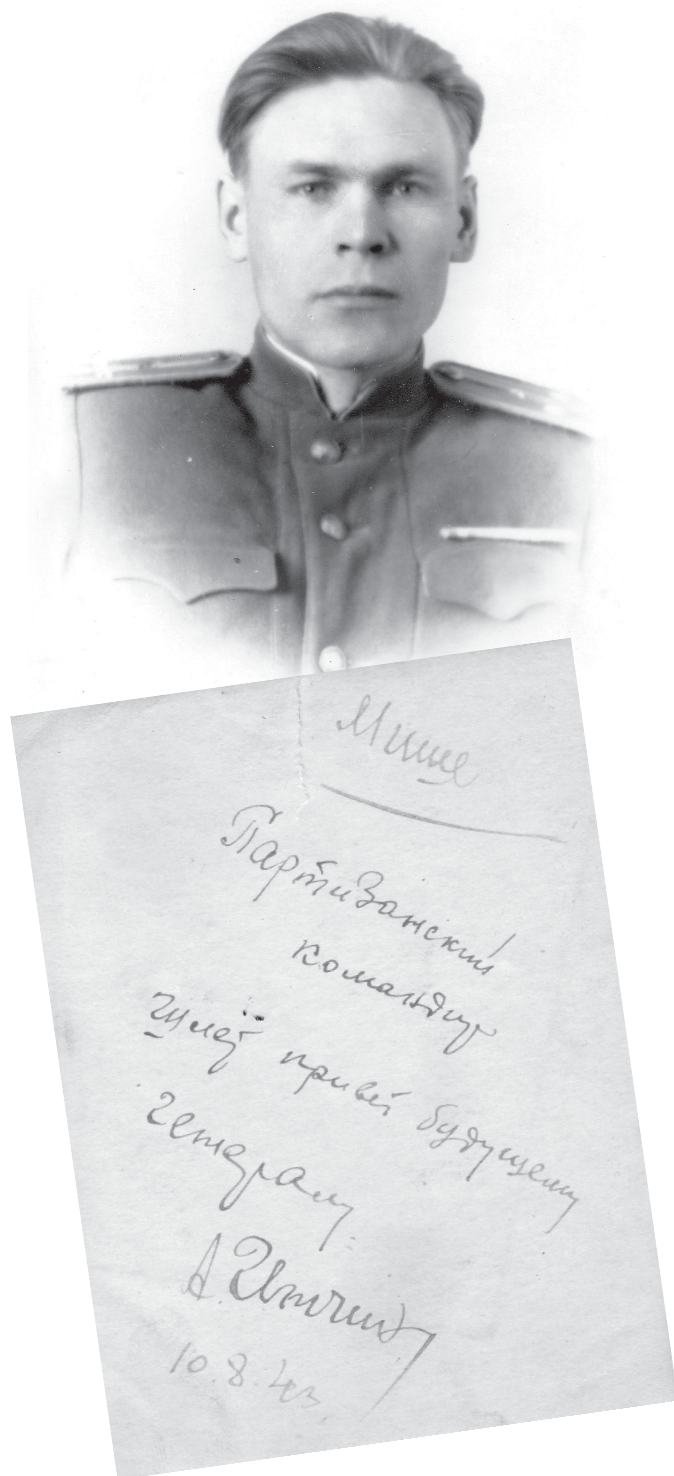 Мише
Партизанский
командир
шлёт привет будущему
генералу
10.8.43.